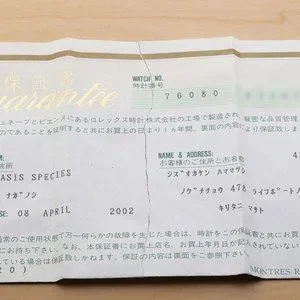 保証書
Guarantee
WATCH NO.
時計番号
76080
ュネーブとビエンヌにあるロレックス時計株式会社の工場で製造され
厳密な品質管理
のであることを証明すると共にお買上の日より1ヵ年間、裏面の内容に
より保証致しま
住所
ASIS SPECIES
ナガノシ
SE: 08 APRIL 2002
NAME & ADDRESS:
お客様のご住所とお名前
シズオカケン ハママツシ
ノグチチョウ 478
ライフポート
キリタニ マサト
通常のご使用状態
万一何らかの故障を生じた場合は、時計をこの保証
なお、本保証書にお買上店名、お買上年月日が記入
保証の内容は裏面をご参照下さい。
20)
MONTRES R